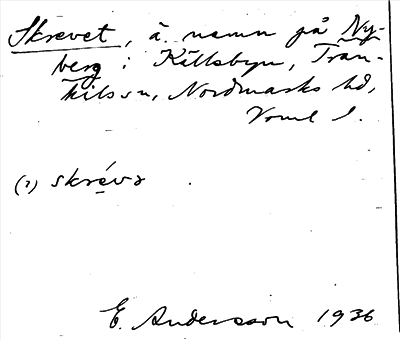 Skrevet, ä. namn på Ny-
berg i Källsbyn, Tran-
kils sn, Nordmarks hd,
Vrml l.
(?) skrévə .
E. Andersson 1936